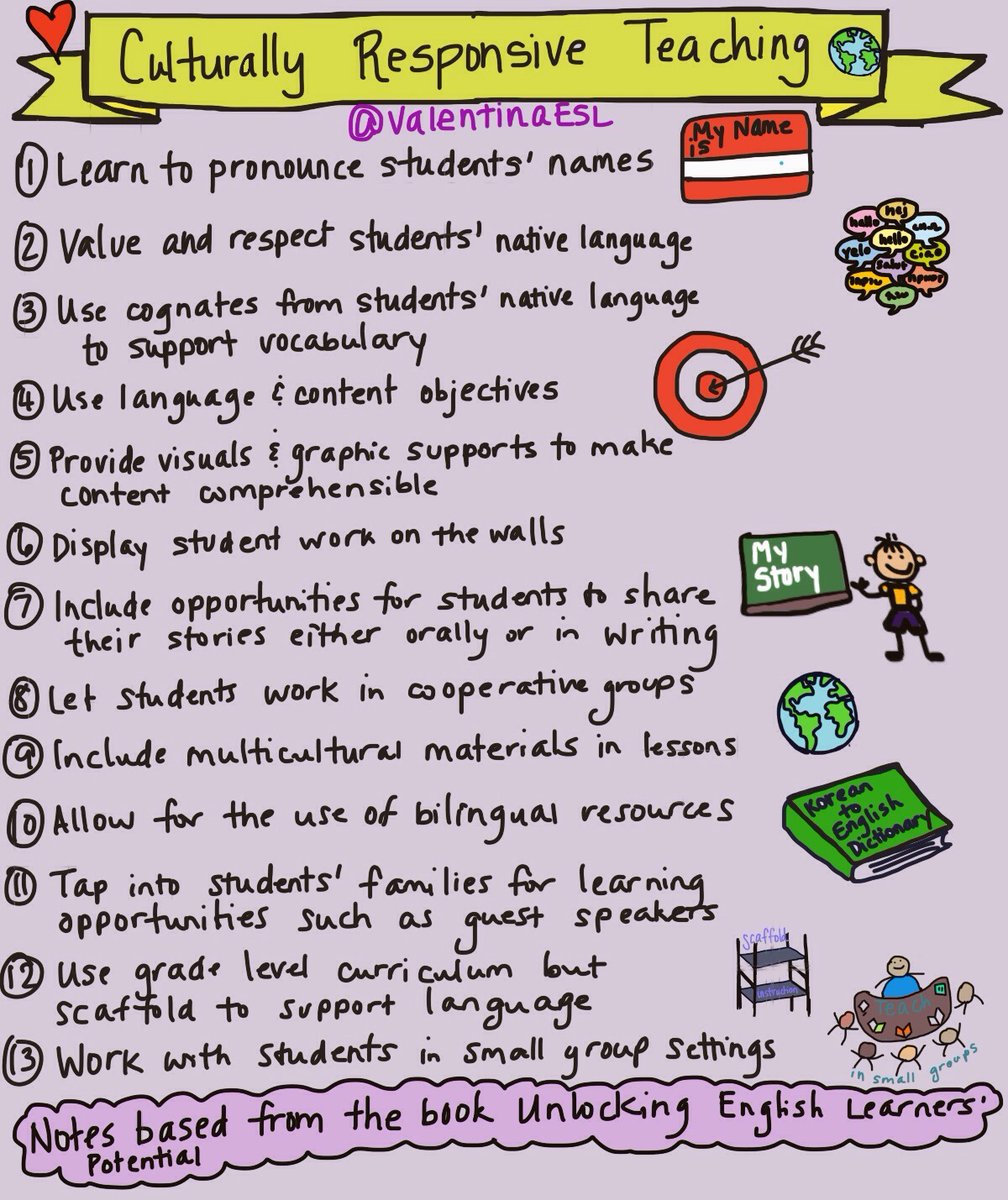 Culturally Responsive Teaching
@ValentinaESL
My Name
is
① Learn to pronounce students' names
② Value and respect students' native language
hej
hallo
hello
ciao
salut
③ Use cognates from students' native language
to support vocabulary
④ Use language & content objectives
⑤ Provide visuals & graphic supports to make
content comprehensible
⑥ Display student work on the walls
My
Story
⑦ Include opportunities for students to share
their stories either orally or in writing
⑧ Let students work in cooperative groups
⑨ Include multicultural materials in lessons
⑩ Allow for the use of bilingual resources
Korean
to
English
Dictionary
⑪ Tap into students' families for learning
opportunities such as guest speakers
⑫ Use grade level curriculum but
scaffold to support language
Scaffold
instruction
⑬ Work with students in small group settings
Teach
in small groups
Notes based from the book Unlocking English Learners'
Potential